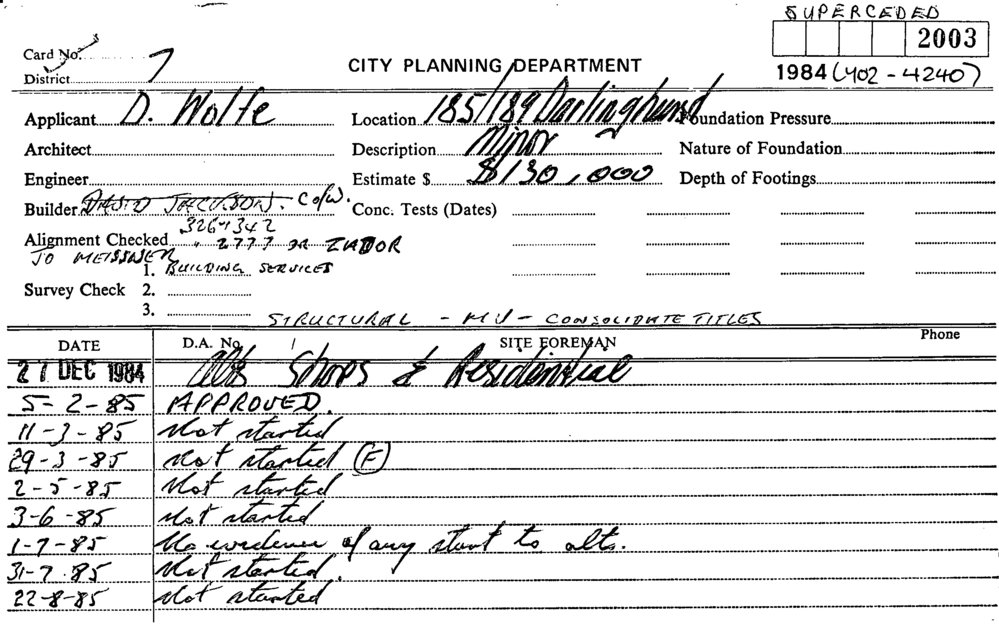 SUPERCEDED
2003
1984 (402 - 4240)
Card No.
District 7
CITY PLANNING DEPARTMENT
Applicant D. Wolfe
Location 185/189 Darlinghurst
Foundation Pressure
Architect
Description Minor
Nature of Foundation
Engineer
Estimate $ $130,000
Depth of Footings
Builder DAVID JACKSON. C of W.
Conc. Tests (Dates)
3264342
Alignment Checked " 2777 OR ZADOR
JO MEISSNER
1. BUILDING SERVICES
Survey Check 2.
3.
STRUCTURAL - MU - CONSOLIDATE TITLES
DATE D.A. No. SITE FOREMAN Phone
27 DEC 1984 Alts Shops & Residential
5-2-85 APPROVED.
11-3-85 Not started
29-3-85 Not started (F)
2-5-85 Not started
3-6-85 Not started
1-7-85 No evidence of any start to alts.
31-7-85 Not started.
22-8-85 Not started